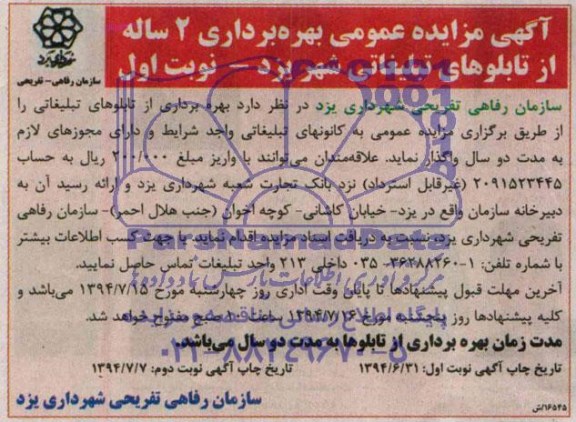 آگهی مزایده عمومی بهره‌برداری ۲ ساله
از تابلوهای تبلیغاتی شهر یزد - نوبت اول
شهرداری یزد
سازمان رفاهی - تفریحی
سازمان رفاهی تفریحی شهرداری یزد در نظر دارد بهره برداری از تابلوهای تبلیغاتی را
از طریق برگزاری مزایده عمومی به کانونهای تبلیغاتی واجد شرایط و دارای مجوزهای لازم
به مدت دو سال واگذار نماید. علاقه‌مندان می‌توانند با واریز مبلغ ۲۰۰/۰۰۰ ریال به حساب
۲۰۹۱۵۲۳۴۴۵ (غیرقابل استرداد) نزد بانک تجارت شعبه شهرداری یزد و ارائه رسید آن به
دبیرخانه سازمان واقع در یزد- خیابان کاشانی- کوچه اخوان (جنب هلال احمر)- سازمان رفاهی
تفریحی شهرداری یزد، نسبت به دریافت اسناد مزایده اقدام نمایند یا جهت کسب اطلاعات بیشتر
با شماره تلفن: ۱-۳۶۲۸۸۴۶۰- ۰۳۵ داخلی ۲۱۳ واحد تبلیغات تماس حاصل نمایید.
آخرین مهلت قبول پیشنهادها تا پایان وقت اداری روز چهارشنبه مورخ ۱۳۹۴/۷/۱۵ می‌باشد و
کلیه پیشنهادها روز پنجشنبه مورخ ۱۳۹۴/۷/۱۶ ساعت ۱۰ صبح مفتوح خواهد شد.
مدت زمان بهره برداری از تابلوها به مدت دو سال می‌باشد.
تاریخ چاپ آگهی نوبت اول: ۱۳۹۴/۶/۳۱ تاریخ چاپ آگهی نوبت دوم: ۱۳۹۴/۷/۷
سازمان رفاهی تفریحی شهرداری یزد
۱۶۵۴۵/ش
ParsNamadData
گردآوری اطلاعات پارس نماد داده‌ها
پایگاه اطلاع رسانی مناقصه و مزایده
۰۲۱-۸۸۳۴۹۶۷۰-۵